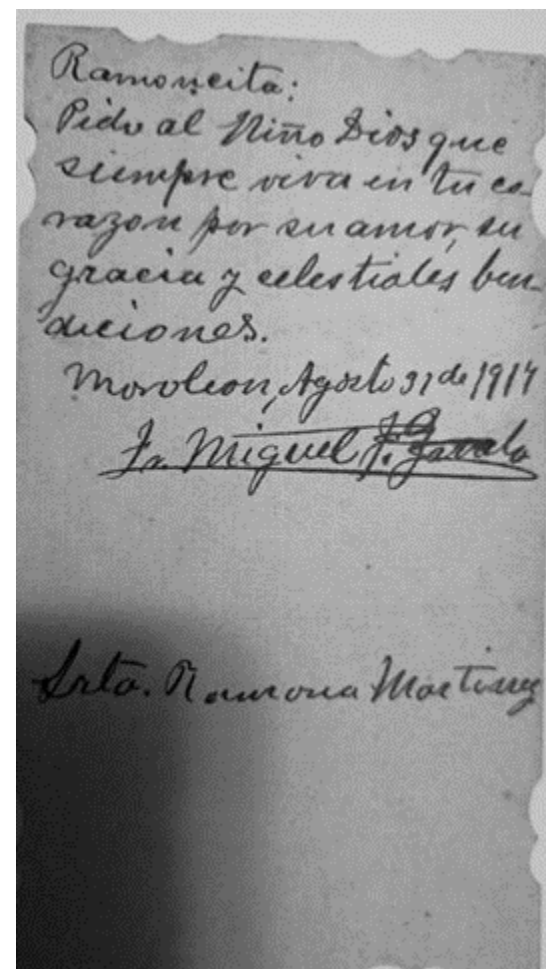 Ramoncita:
Pido al Niño Dios que
siempre viva en tu co-
razon por su amor, su
gracia y celestiales ben-
diciones.
Moroleon, Agosto 31 de 1914
Fr. Miguel F.
Srta. Ramona Martinez